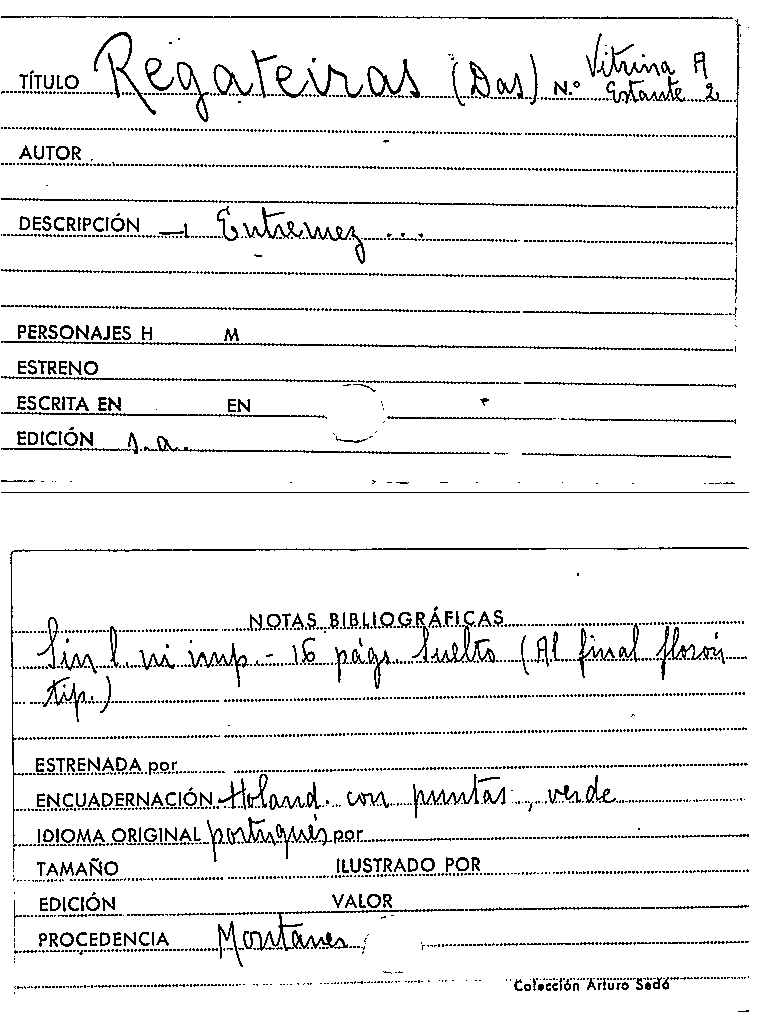 TÍTULO Regateiras (Das) N.º Vitrina A
Estante 2
AUTOR
DESCRIPCIÓN — Entremez ...
PERSONAJES H M
ESTRENO
ESCRITA EN EN
EDICIÓN s.a.
NOTAS BIBLIOGRÁFICAS
Sin l. ni imp. - 16 págs. Suelto (Al final florón
tip.)
ESTRENADA por
ENCUADERNACIÓN Holand. con puntas, verde
IDIOMA ORIGINAL portugués por
TAMAÑO ILUSTRADO POR
EDICIÓN VALOR
PROCEDENCIA Montaner
Colección Arturo Sedó